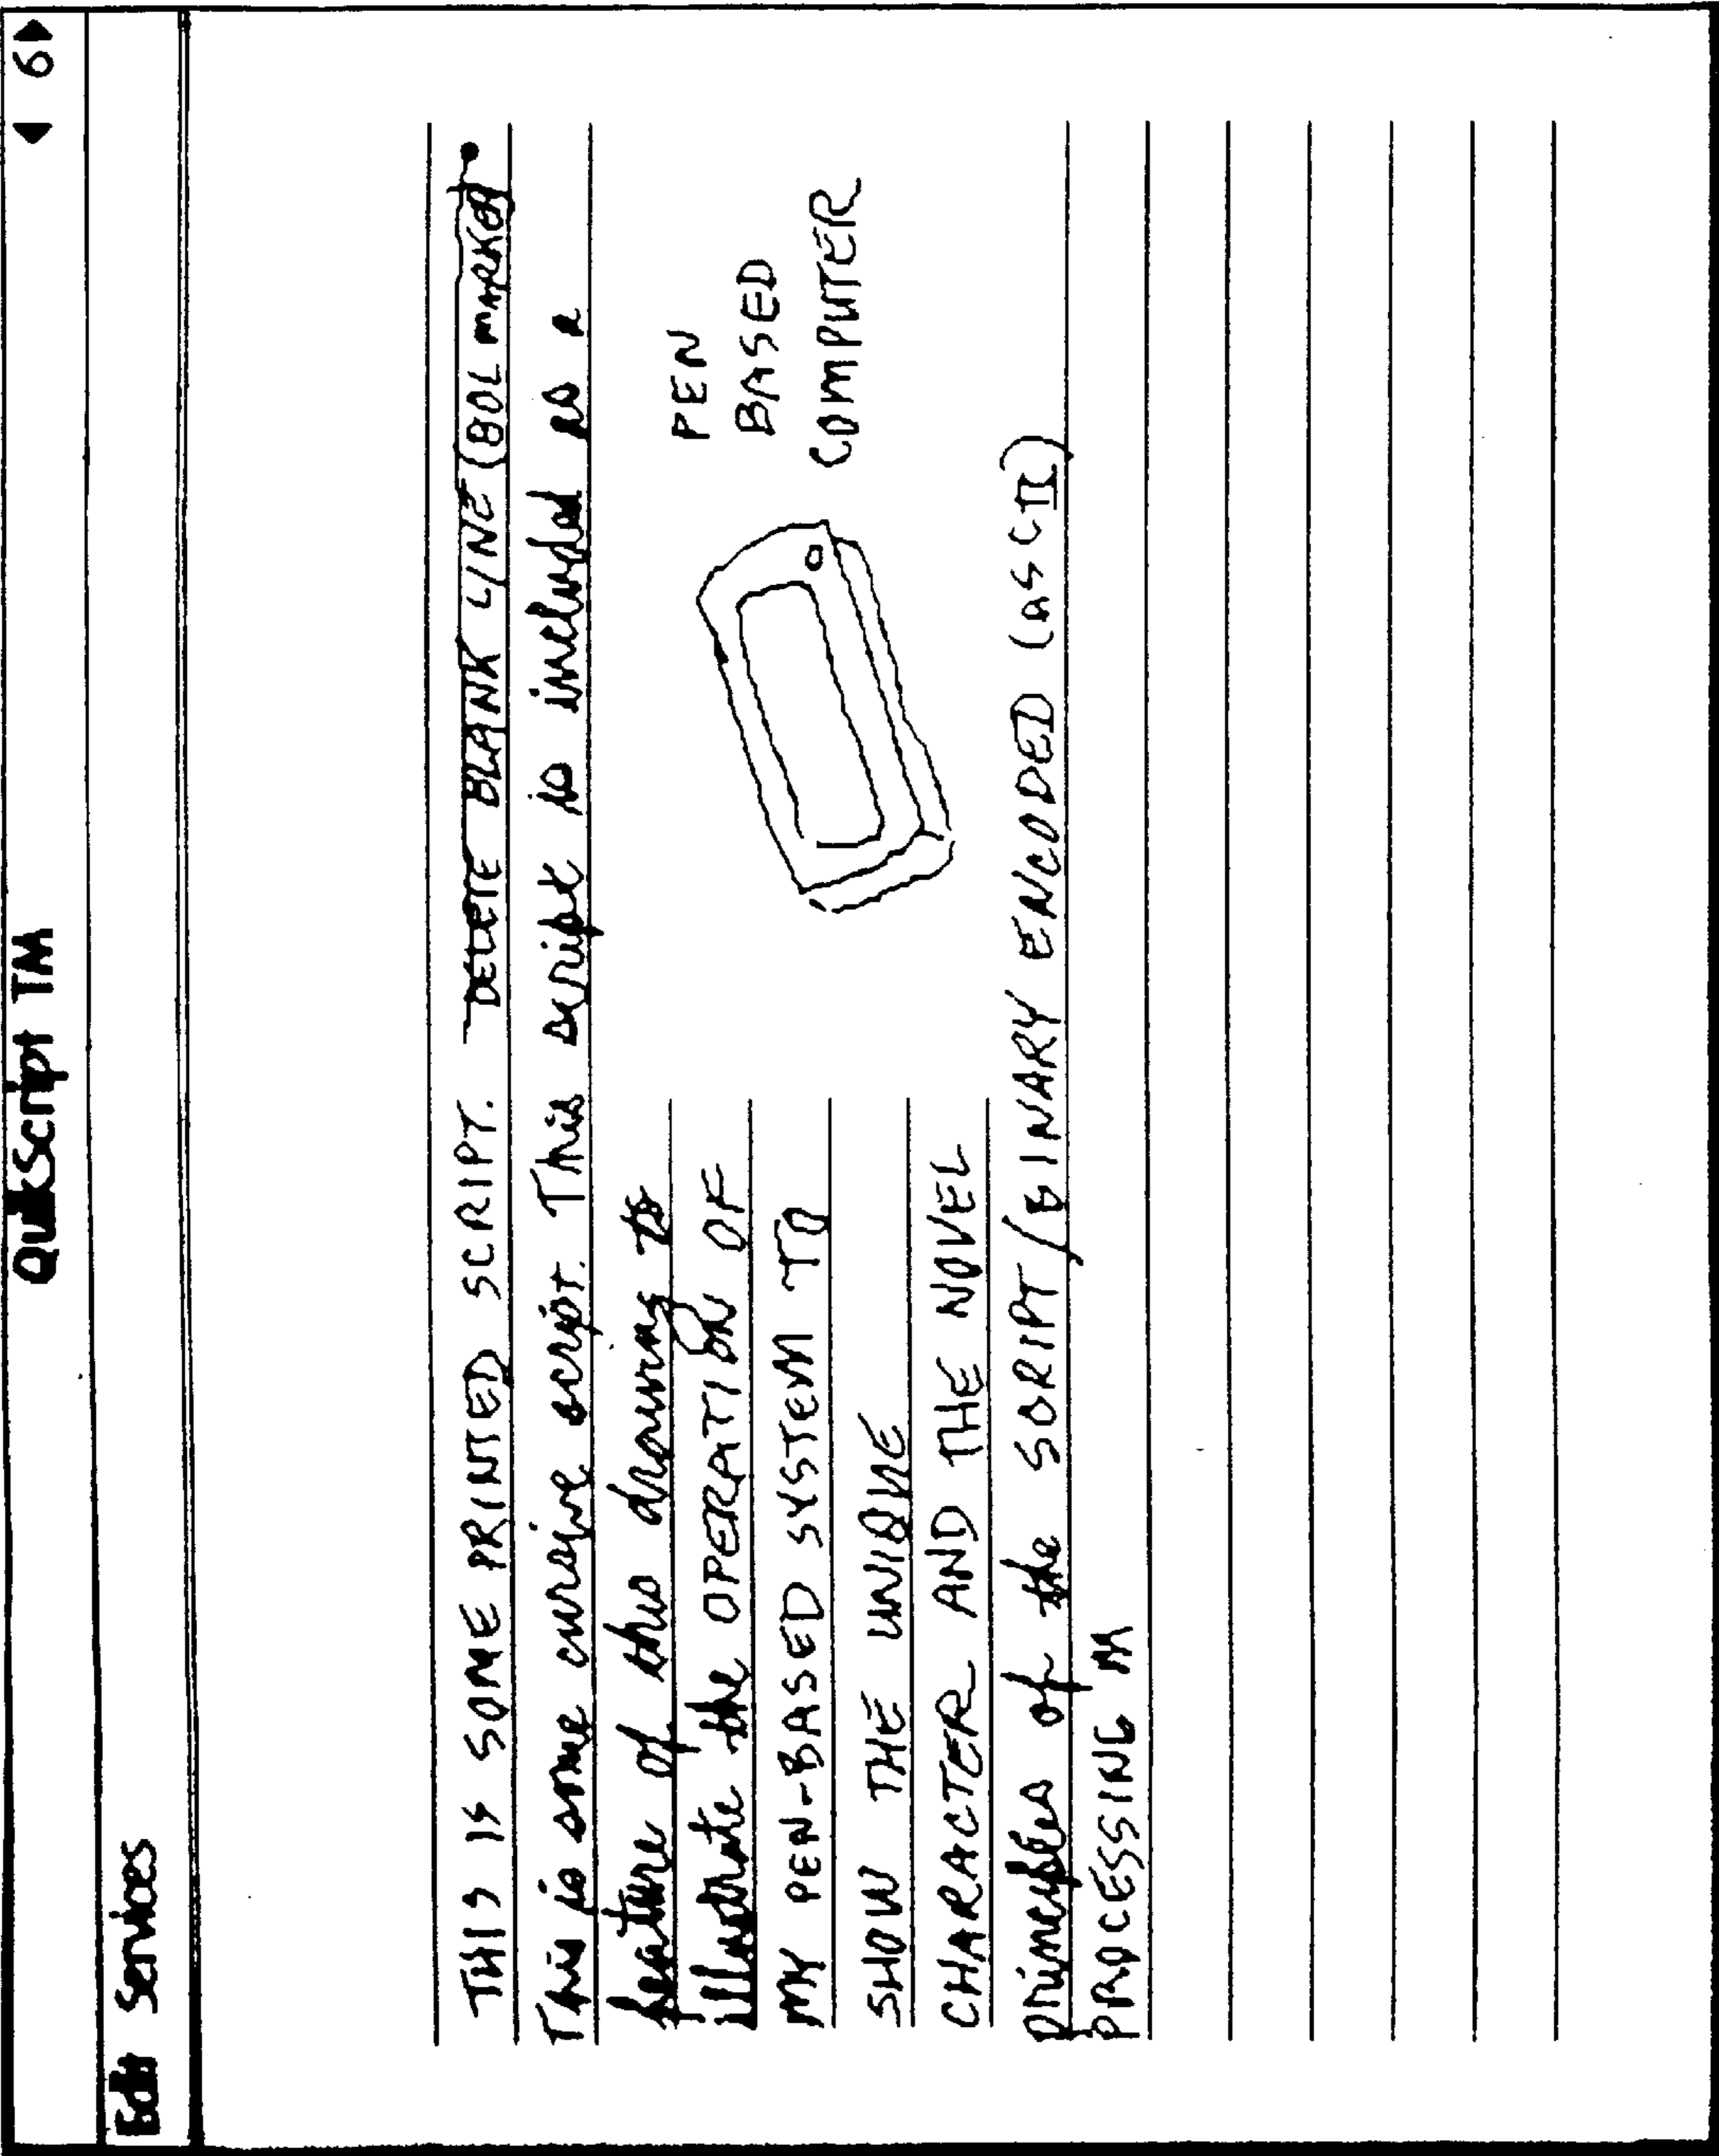 QuikScript TM
◀ 6▶
Edit Services
THIS IS SOME PRINTED SCRIPT. DELETE BLANK LINE (BOL MARKER
This is some cursive script. This script is included as a
feature of this drawing to
illustrate the OPERATION OF
MY PEN-BASED SYSTEM TO
SHOW THE UNIQUE
CHARACTER AND THE NOVEL
PEN
BASED
COMPUTER
principles of the SCRIPT/BINARY ENCODED (ASCII)
PROCESSING M